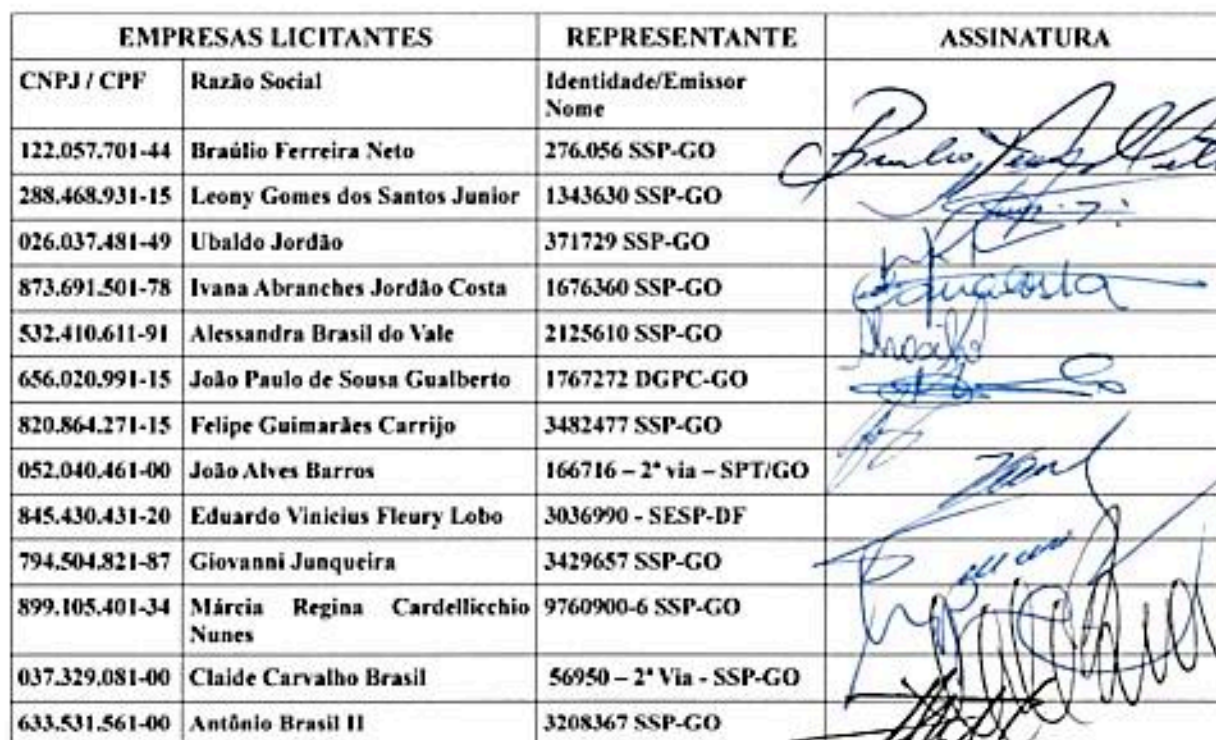 EMPRESAS LICITANTES REPRESENTANTE ASSINATURA
CNPJ / CPF Razão Social Identidade/Emissor
Nome
122.057.701-44 Braúlio Ferreira Neto 276.056 SSP-GO
288.468.931-15 Leony Gomes dos Santos Junior 1343630 SSP-GO
026.037.481-49 Ubaldo Jordão 371729 SSP-GO
873.691.501-78 Ivana Abranches Jordão Costa 1676360 SSP-GO
532.410.611-91 Alessandra Brasil do Vale 2125610 SSP-GO
656.020.991-15 João Paulo de Sousa Gualberto 1767272 DGPC-GO
820.864.271-15 Felipe Guimarães Carrijo 3482477 SSP-GO
052.040.461-00 João Alves Barros 166716 – 2ª via – SPT/GO
845.430.431-20 Eduardo Vinicius Fleury Lobo 3036990 - SESP-DF
794.504.821-87 Giovanni Junqueira 3429657 SSP-GO
899.105.401-34 Márcia Regina Cardellicchio 9760900-6 SSP-GO
Nunes
037.329.081-00 Claide Carvalho Brasil 56950 – 2ª Via - SSP-GO
633.531.561-00 Antônio Brasil II 3208367 SSP-GO